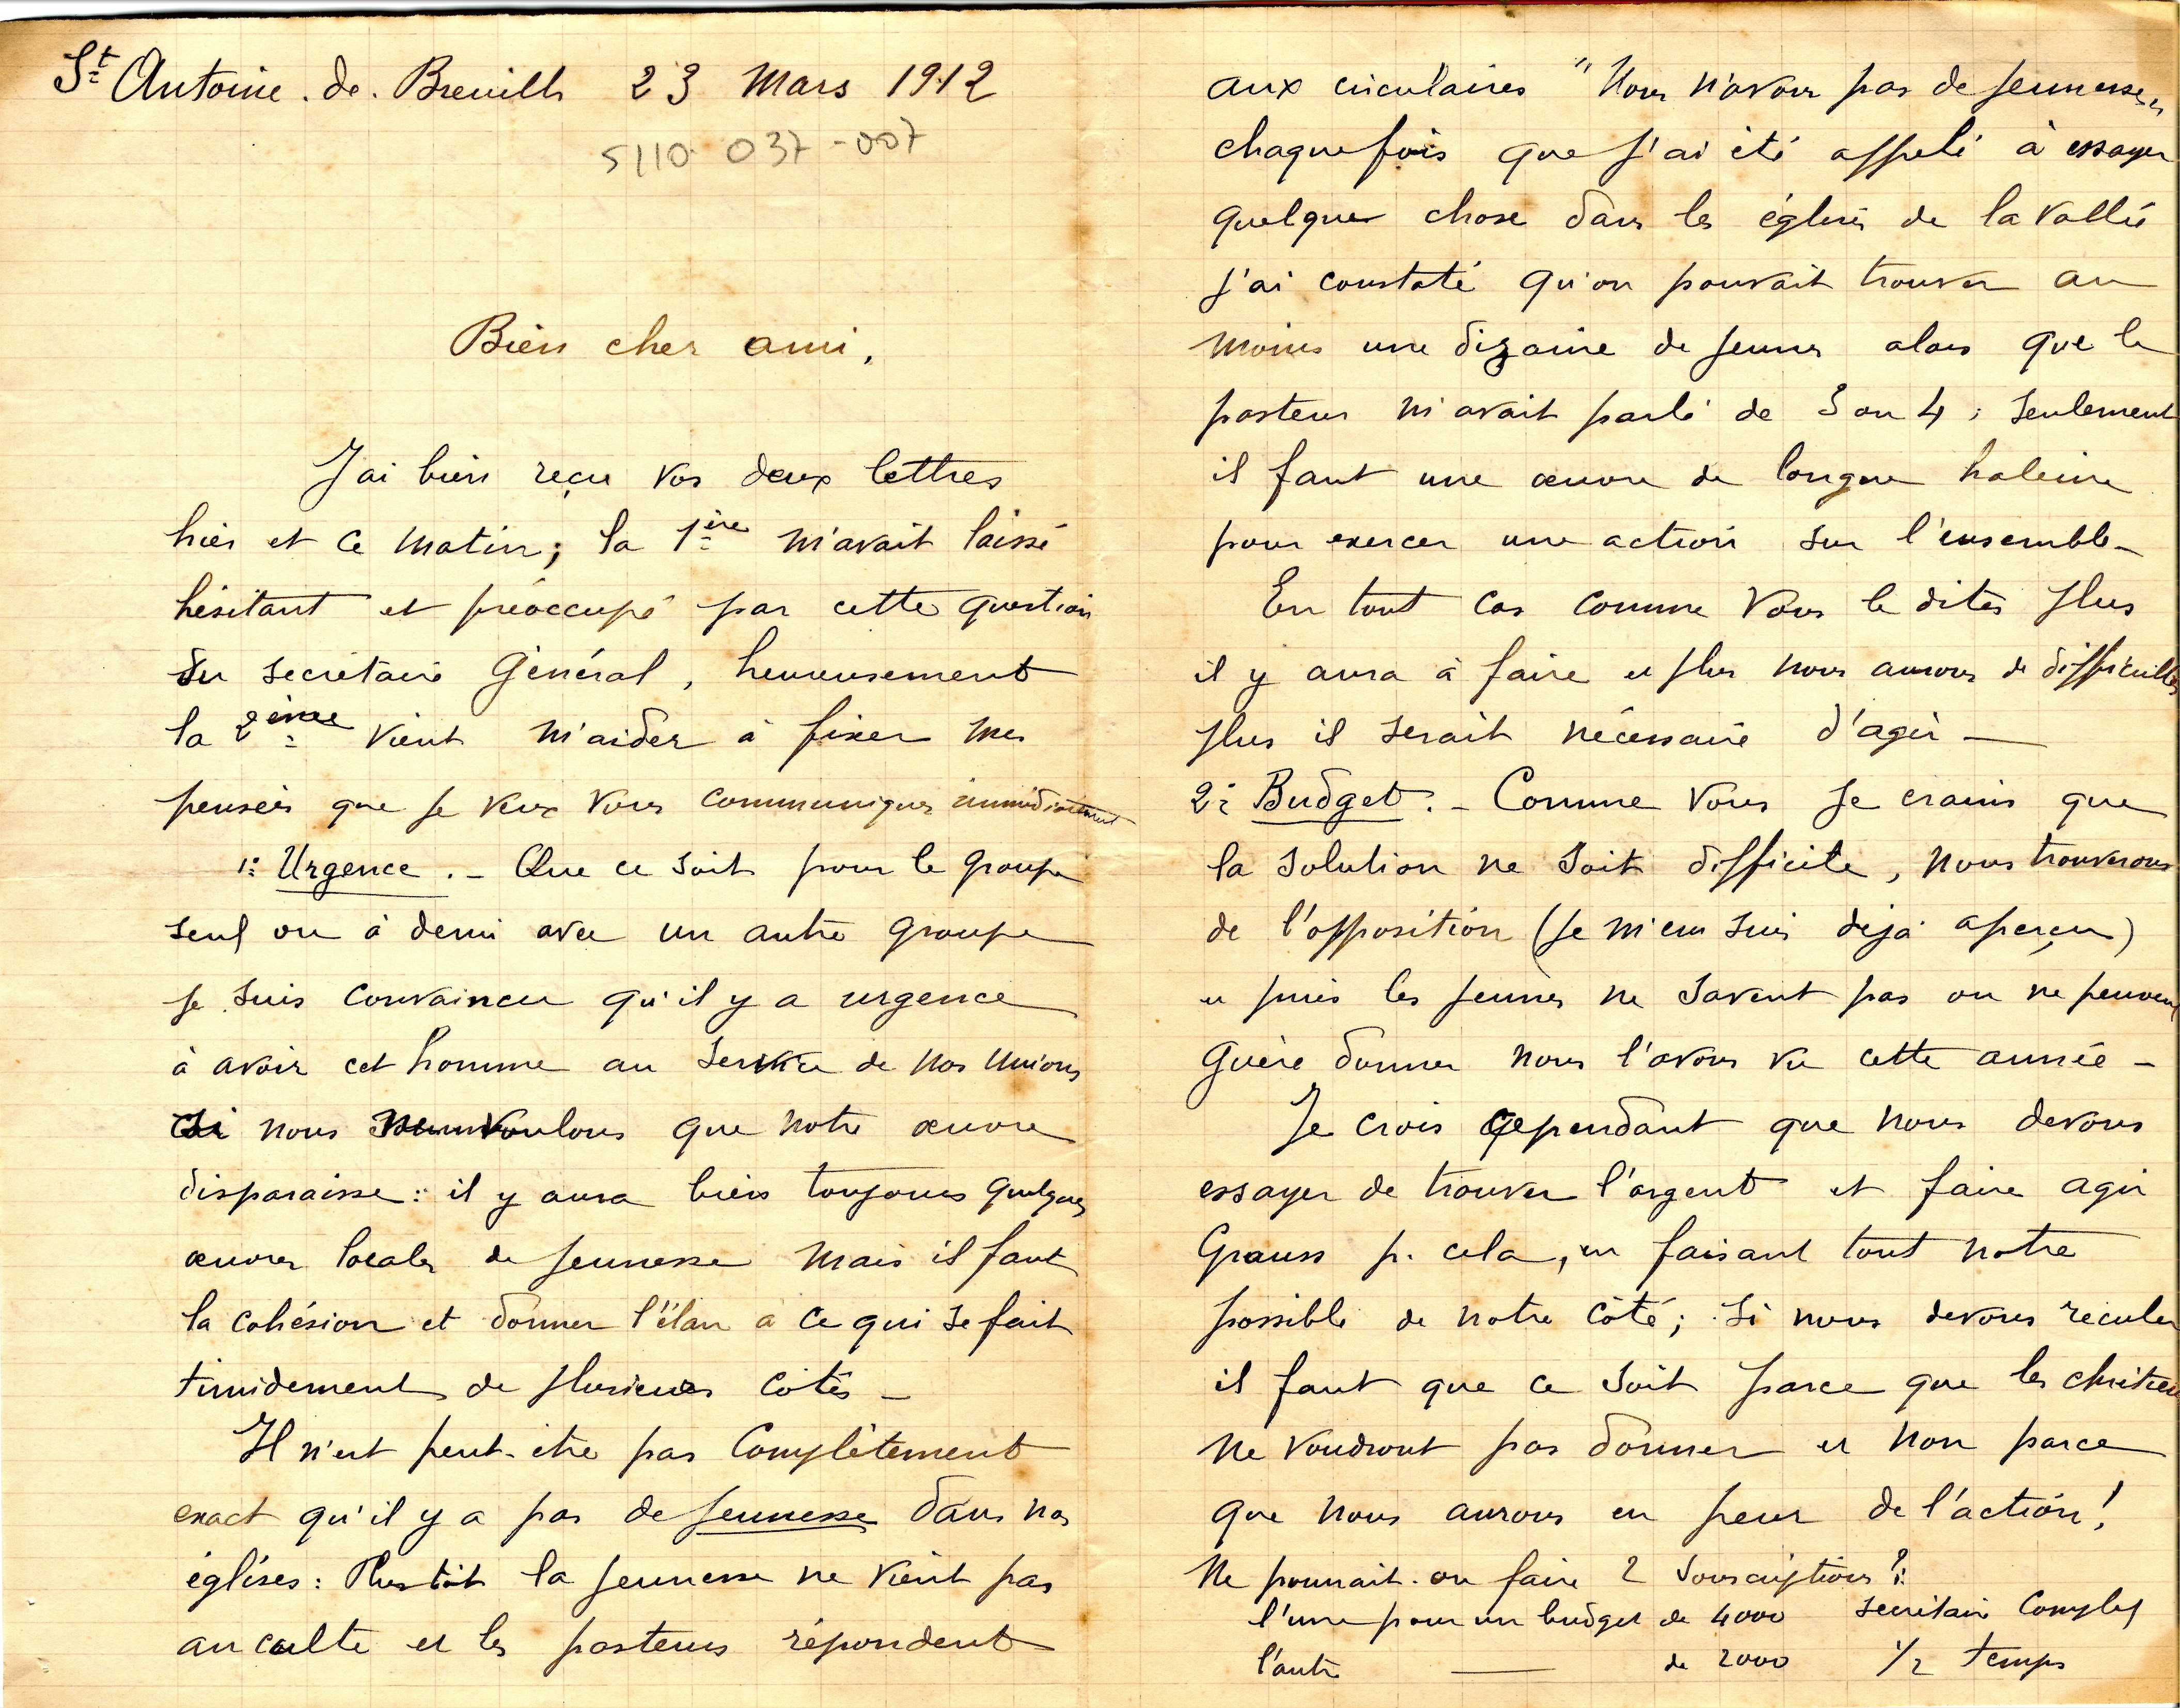 St Antoine. de. Breuilh 23 Mars 1912
5110 037-007
Bien cher ami,
J'ai bien reçu vos deux lettres
hier et ce matin; la 1ère m'avait laissé
hésitant et préoccupé par cette question
du secrétaire Général, heureusement
la 2ème vient m'aider à fixer mes
pensées que je veux vous communiquer immédiatement
1: Urgence. - Que ce soit pour le groupe
seul ou à demi avec un autre groupe
je suis convaincu qu'il y a urgence
à avoir cet homme au service de nos Unions
si nous voulons que notre œuvre
disparaisse: il y aura bien toujours quelques
œuvres locales de jeunesse mais il faut
la cohésion et donner l'élan à ce qui se fait
timidement de plusieurs côtés -
Il n'est peut-être pas complètement
exact qu'il y a pas de jeunesse dans nos
églises: Plustôt la jeunesse ne vient pas
au culte et les pasteurs répondent
aux circulaires "Nous n'avons pas de jeunesse"
chaque fois que j'ai été appelé à essayer
quelque chose dans les églises de la vallée
j'ai constaté qu'on pouvait trouver au
moins une dizaine de jeunes alors que le
pasteur m'avait parlé de 3 ou 4; seulement
il faut une œuvre de longue haleine
pour exercer une action sur l'ensemble -
En tout cas comme vous le dites plus
il y aura à faire et plus nous aurons de difficultés
plus il serait nécessaire d'agir -
2: Budget. - Comme vous je crains que
la solution ne soit difficile, nous trouverons
de l'opposition (je m'en suis déjà aperçu)
et puis les jeunes ne savent pas ou ne peuvent
guère donner nous l'avons vu cette année -
Je crois cependant que nous devons
essayer de trouver l'argent et faire agir
Grauss p. cela, en faisant tout notre
possible de notre côté; si nous devons reculer
il faut que ce soit parce que les chrétiens
ne voudront pas donner et non parce
que nous aurons eu peur de l'action!
Ne pourrait-on faire 2 souscriptions?:
l'une pour un budget de 4000 secrétaire complet
l'autre — de 2000 1/2 temps